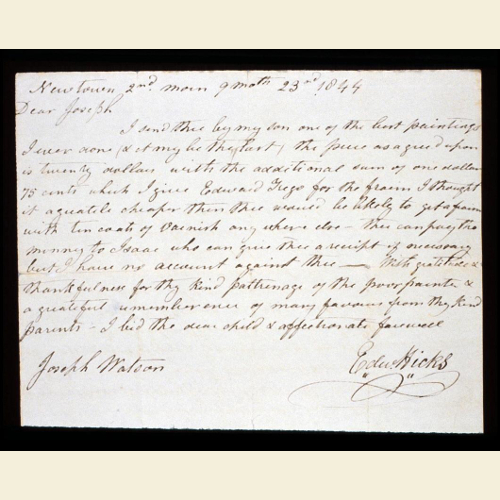 Newtown 2nd morn 9 moth 23rd 1844
Dear Joseph
I send thee by my son one of the best paintings
I ever done (& it may be the last) the price as agreed upon
is twenty dollars with the additional sum of one dollar
75 cents which I give Edward Trego for the fraim I thought
it a quatile cheaper then thee would be likely to get a fraim
with ten coats of varnish any where else – thee can pay the
money to Isaac who can give thee a receipt if necessary
but I have no account against thee — With gratitude &
thankfulness for thy kind patrenage of the poor painter &
a grateful rememberence of many favours from thy kind
parents – I bid the dear child & affectionate farewell
Joseph Watson
Edw. Hicks